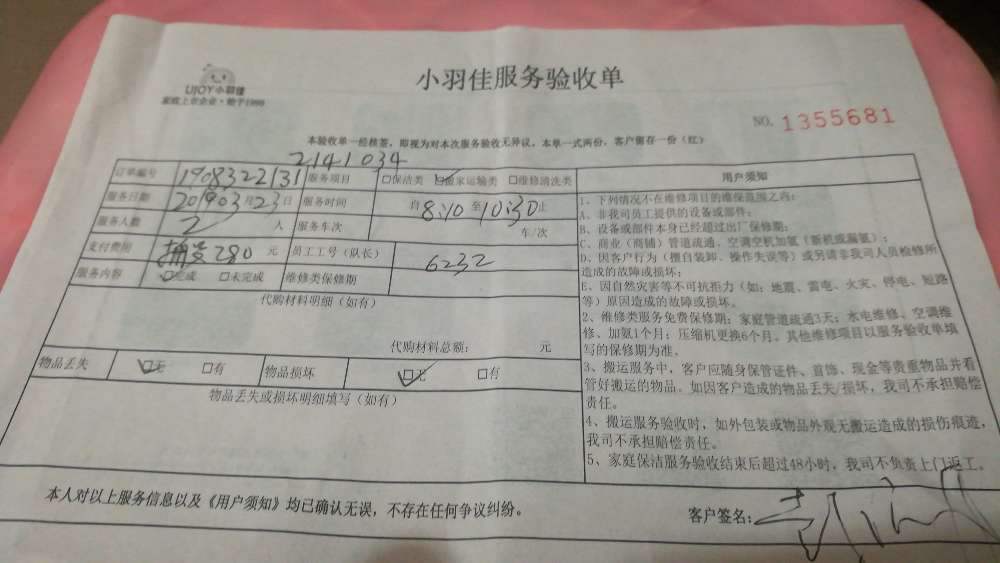 UJOY小羽佳
家庭上市企业·始于1998
小羽佳服务验收单
NO. 1355681
本验收单一经核签，即视为对本次服务验收无异议，本单一式两份，客户留存一份（红）
2141034
订单编号 1908322131 服务项目 □保洁类 ☑搬家运输类 □维修清洗类
服务日期 201903月23日 服务时间 自8:10至10:30止
服务人数 2 人 服务车次 车/次
支付费用 280 元 员工工号（队长） 6232
服务内容 ☑完成 □未完成 维修类保修期
代购材料明细（如有）
代购材料总额： 元
物品丢失 ☑无 □有 物品损坏 ☑无 □有
物品丢失或损坏明细填写（如有）
用户须知
1、下列情况不在维修项目的维保范围之内：
A、非我司员工提供的设备或部件；
B、设备或部件本身已经超过出厂保修期；
C、商业（商铺）管道疏通、空调空机加氨（新机或漏氨）；
D、因客户行为（擅自装卸、操作失误等）或另请非我司人员检修所
造成的故障或损坏；
E、因自然灾害等不可抗拒力（如：地震、雷电、火灾、停电、短路
等）原因造成的故障或损坏。
2、维修类服务免费保修期：家庭管道疏通3天；水电维修、空调维
修、加氨1个月；压缩机更换6个月。其他维修项目以服务验收单填
写的保修期为准。
3、搬运服务中，客户应随身保管证件、首饰、现金等贵重物品并看
管好搬运的物品。如因客户造成的物品丢失/损坏，我司不承担赔偿
责任。
4、搬运服务验收时，如外包装或物品外观无搬运造成的损伤痕迹，
我司不承担赔偿责任。
5、家庭保洁服务验收结束后超过48小时，我司不负责上门返工。
本人对以上服务信息以及《用户须知》均已确认无误，不存在任何争议纠纷。
客户签名：